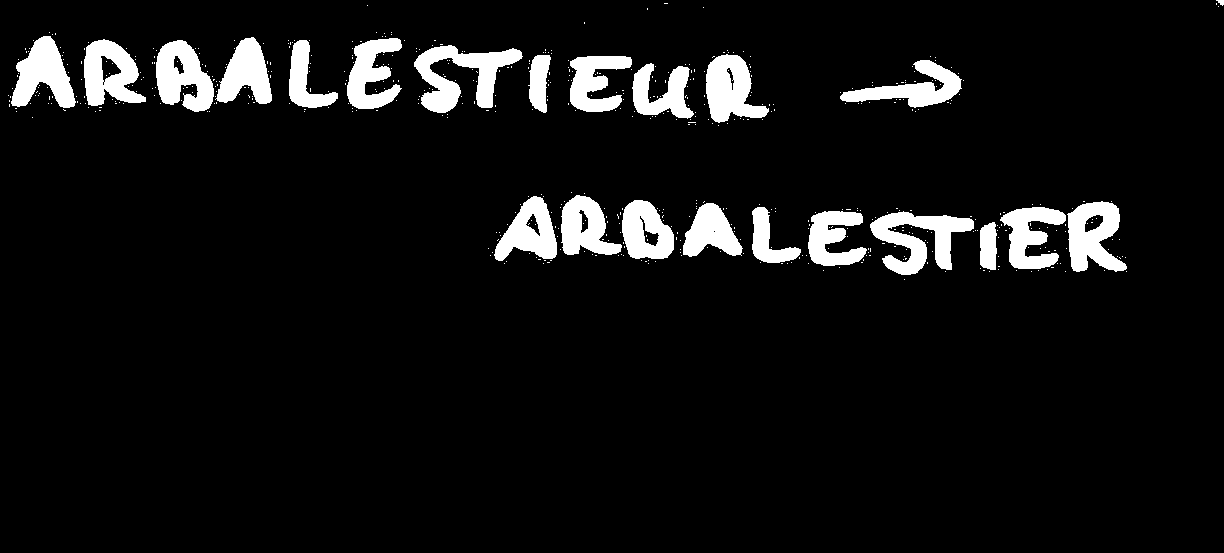 ARBALESTIEUR →
ARBALESTIER